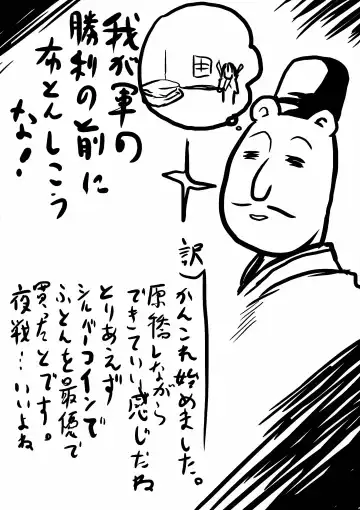 我が軍の
勝利の前に
布とんしこう
な!
訳)かんこれ始めました。
原稿しながら
できていい感じだね
とりあえず
シルバーコインで
ふとんを最優で
買ったとです。
夜戦…いいよね